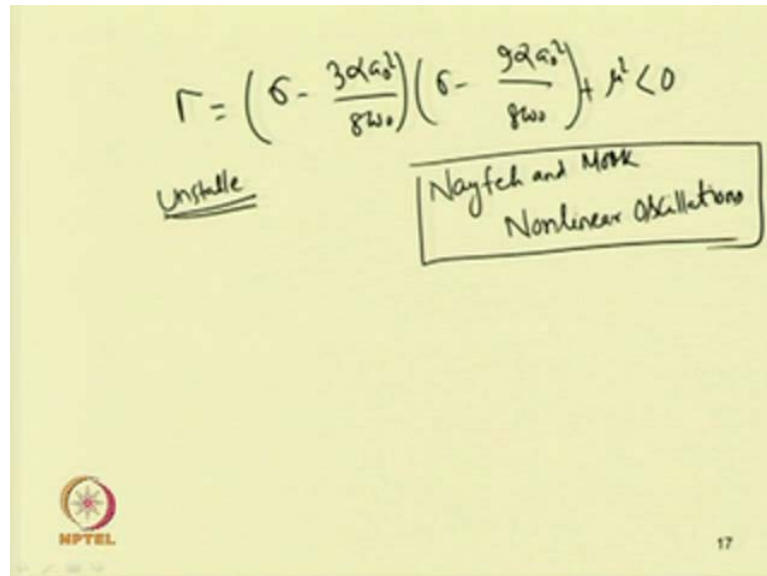 Γ = (σ - 3αa₀²/8ω₀)(σ - 9αa₀²/8ω₀) + μ² < 0
Unstable
Nayfeh and Mook
Nonlinear Oscillations
NPTEL
17